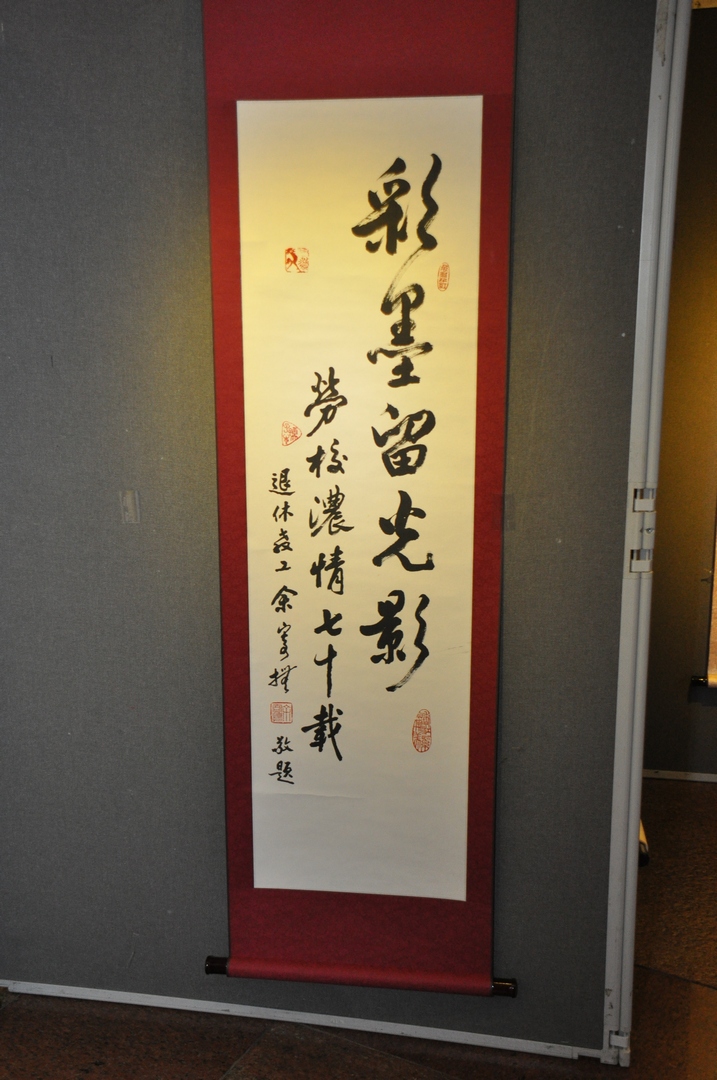 彩墨留光影
勞校濃情七十載
退休教工余寄撫
敬題